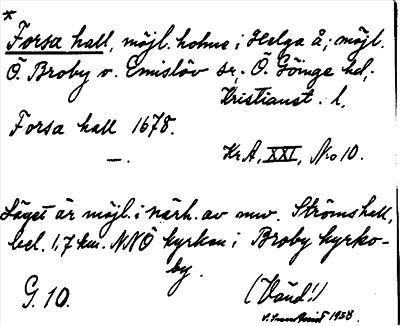 *
Forsa hall, möjl. holme i Helga å; möjl.
Ö. Broby v. Emislöv sr; Ö. Göinge hd;
Kristianst. l.
Forsa hall 1678.
—. Kr.A, XXI, No 10.
Läget är möjl. i närh. av nuv. Strömshall,
bel. 1,7 km. NNÖ kyrkan i Broby kyrko-
by.
G. 10. (Vänd!)
1958.